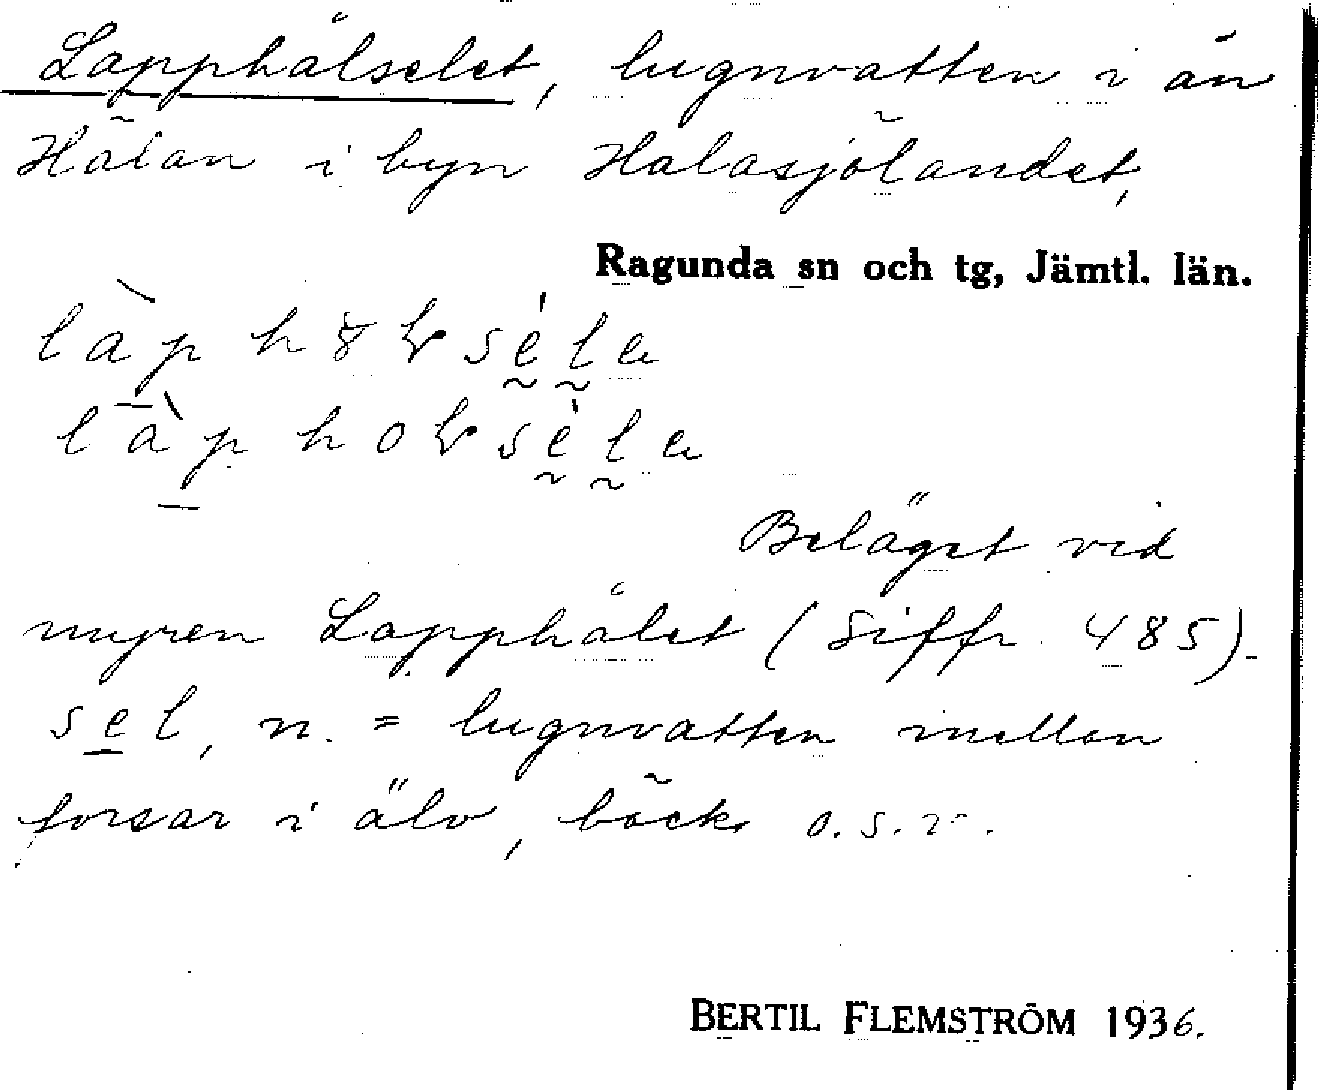 Lapphålselet, lugnvatten i ån
Hålan i byn Halasjölandet,
Ragunda sn och tg, Jämtl. län.
Beläget vid
myren Lapphålet (Siffr. 485).
sel, n. = lugnvatten mellan
forsar i älv, bäck o.s.v.
BERTIL FLEMSTRÖM 1936.